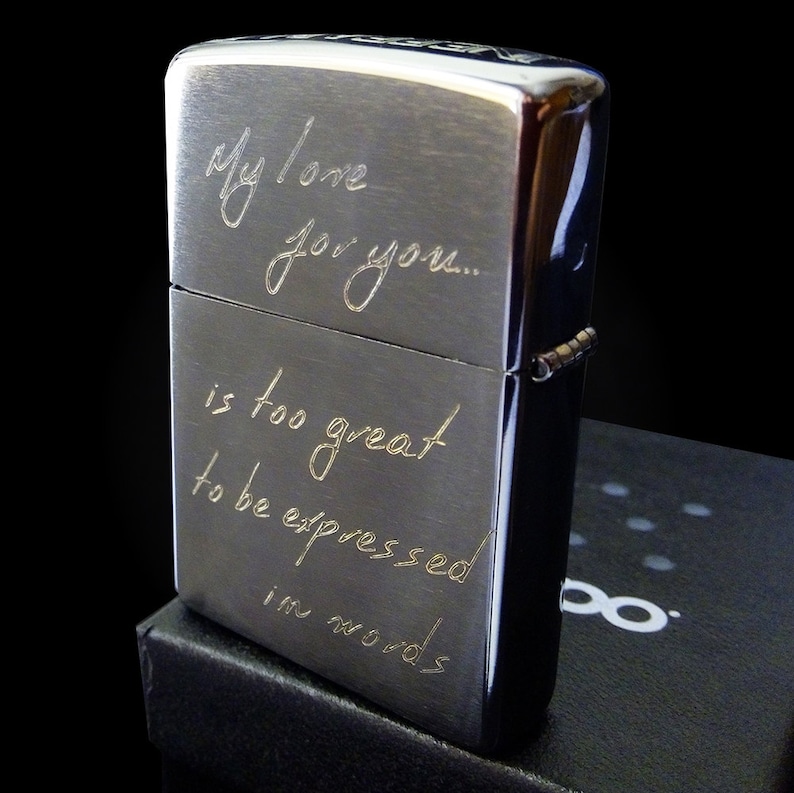 My love
for you...
is too great
to be expressed
in words